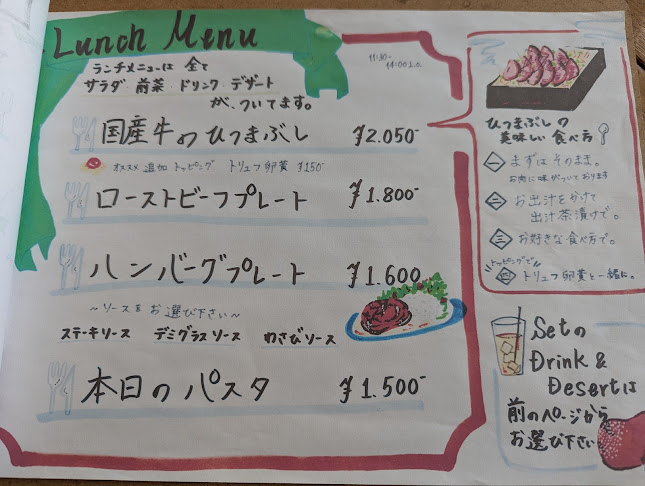 Lunch Menu
11:30-
14:00 L.O.
ランチメニューは 全て
サラダ・前菜・ドリンク・デザート
が、ついてます。
国産牛のひつまぶし ¥2.050-
オススメ 追加 トッピング トリュフ卵黄 ¥150-
ローストビーフプレート ¥1.800-
ハンバーグプレート ¥1.600
～ソースをお選び下さい～
ステーキソース デミグラスソース わさびソース
本日のパスタ ¥1.500-
ひつまぶしの
美味しい食べ方
一 まずはそのまま。
お肉に味がついております
二 お出汁をかけて
出汁茶漬けで。
三 お好きな食べ方で。
トッピングで
四 トリュフ卵黄と一緒に。
Setの
Drink &
Desertは
前のページから
お選び下さい